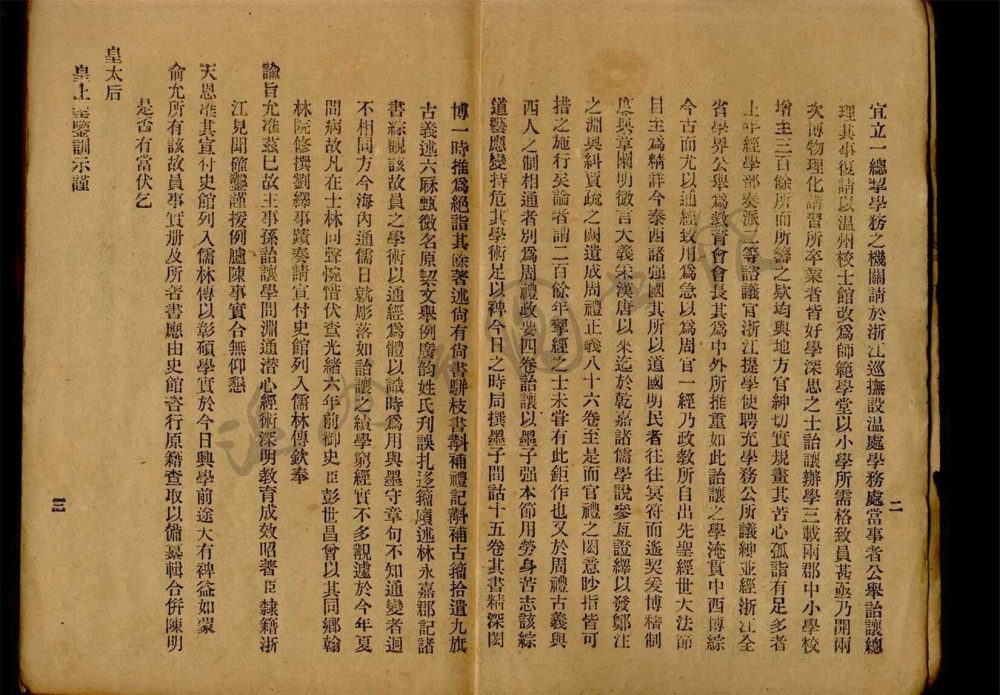 宜立一總挈學務之機關請於浙江巡撫設溫處學務處當事者公舉詒讓總
理其事復請以溫州校士館改爲師範學堂以小學所需格致員甚亟乃開兩
次博物理化講習所卒業者皆好學深思之士詒讓辦學三載兩郡中小學校
增至三百餘所而所籌之欵均與地方官紳切實規畫其苦心孤詣有足多者
上年經學部奏派二等諮議官浙江提學使聘充學務公所議紳並經浙江全
省學界公舉爲教育會會長其爲中外所推重如此詒讓之學淹貫中西博綜
今古而尤以通經致用爲急以爲周官一經乃政教所自出先聖經世大法節
目至爲精詳今泰西諸强國其所以道國明民者往往冥符而遙契爰博稽制
度典章闡明微言大義宋漢唐以來迄於乾嘉諸儒學說參互證繹以發鄭注
之淵奧糾賈疏之闕遺成周禮正義八十六卷至是而官禮之閎意眇指皆可
措之施行矣論者謂二百餘年羣經之士未嘗有此鉅作也又於周禮古義與
西人之制相通者別爲周禮政要四卷詒讓以墨子强本節用勞身苦志該綜
道藝應變持危其學術足以裨今日之時局撰墨子間詁十五卷其書精深閎
二
博一時推爲絕詣其餘著述尚有尚書駢枝書斠補禮記斠補古籀拾遺九旗
古義述六厤甄微名原契文舉例廣韵姓氏刊誤札迻籀廎述林永嘉郡記諸
書綜觀該故員之學術以通經爲體以識時爲用與墨守章句不知通變者迥
不相同方今海內通儒日就彫落如詒讓之績學窮經實不多覯遽於今年夏
間病故凡在士林同聲惋惜伏查光緒六年前御史臣彭世昌曾以其同鄉翰
林院修撰劉繹事蹟奏請宣付史館列入儒林傳欽奉
諭旨允准茲已故主事孫詒讓學問淵通潛心經術深明教育成效昭著臣隸籍浙
江見聞確鑿謹援例臚陳事實合無仰懇
天恩准其宣付史館列入儒林傳以彰碩學實於今日興學前途大有裨益如蒙
俞允所有該故員事實册及所著書應由史館咨行原籍查取以備纂輯合併陳明
是否有當伏乞
皇太后
皇上聖鑒訓示謹
三